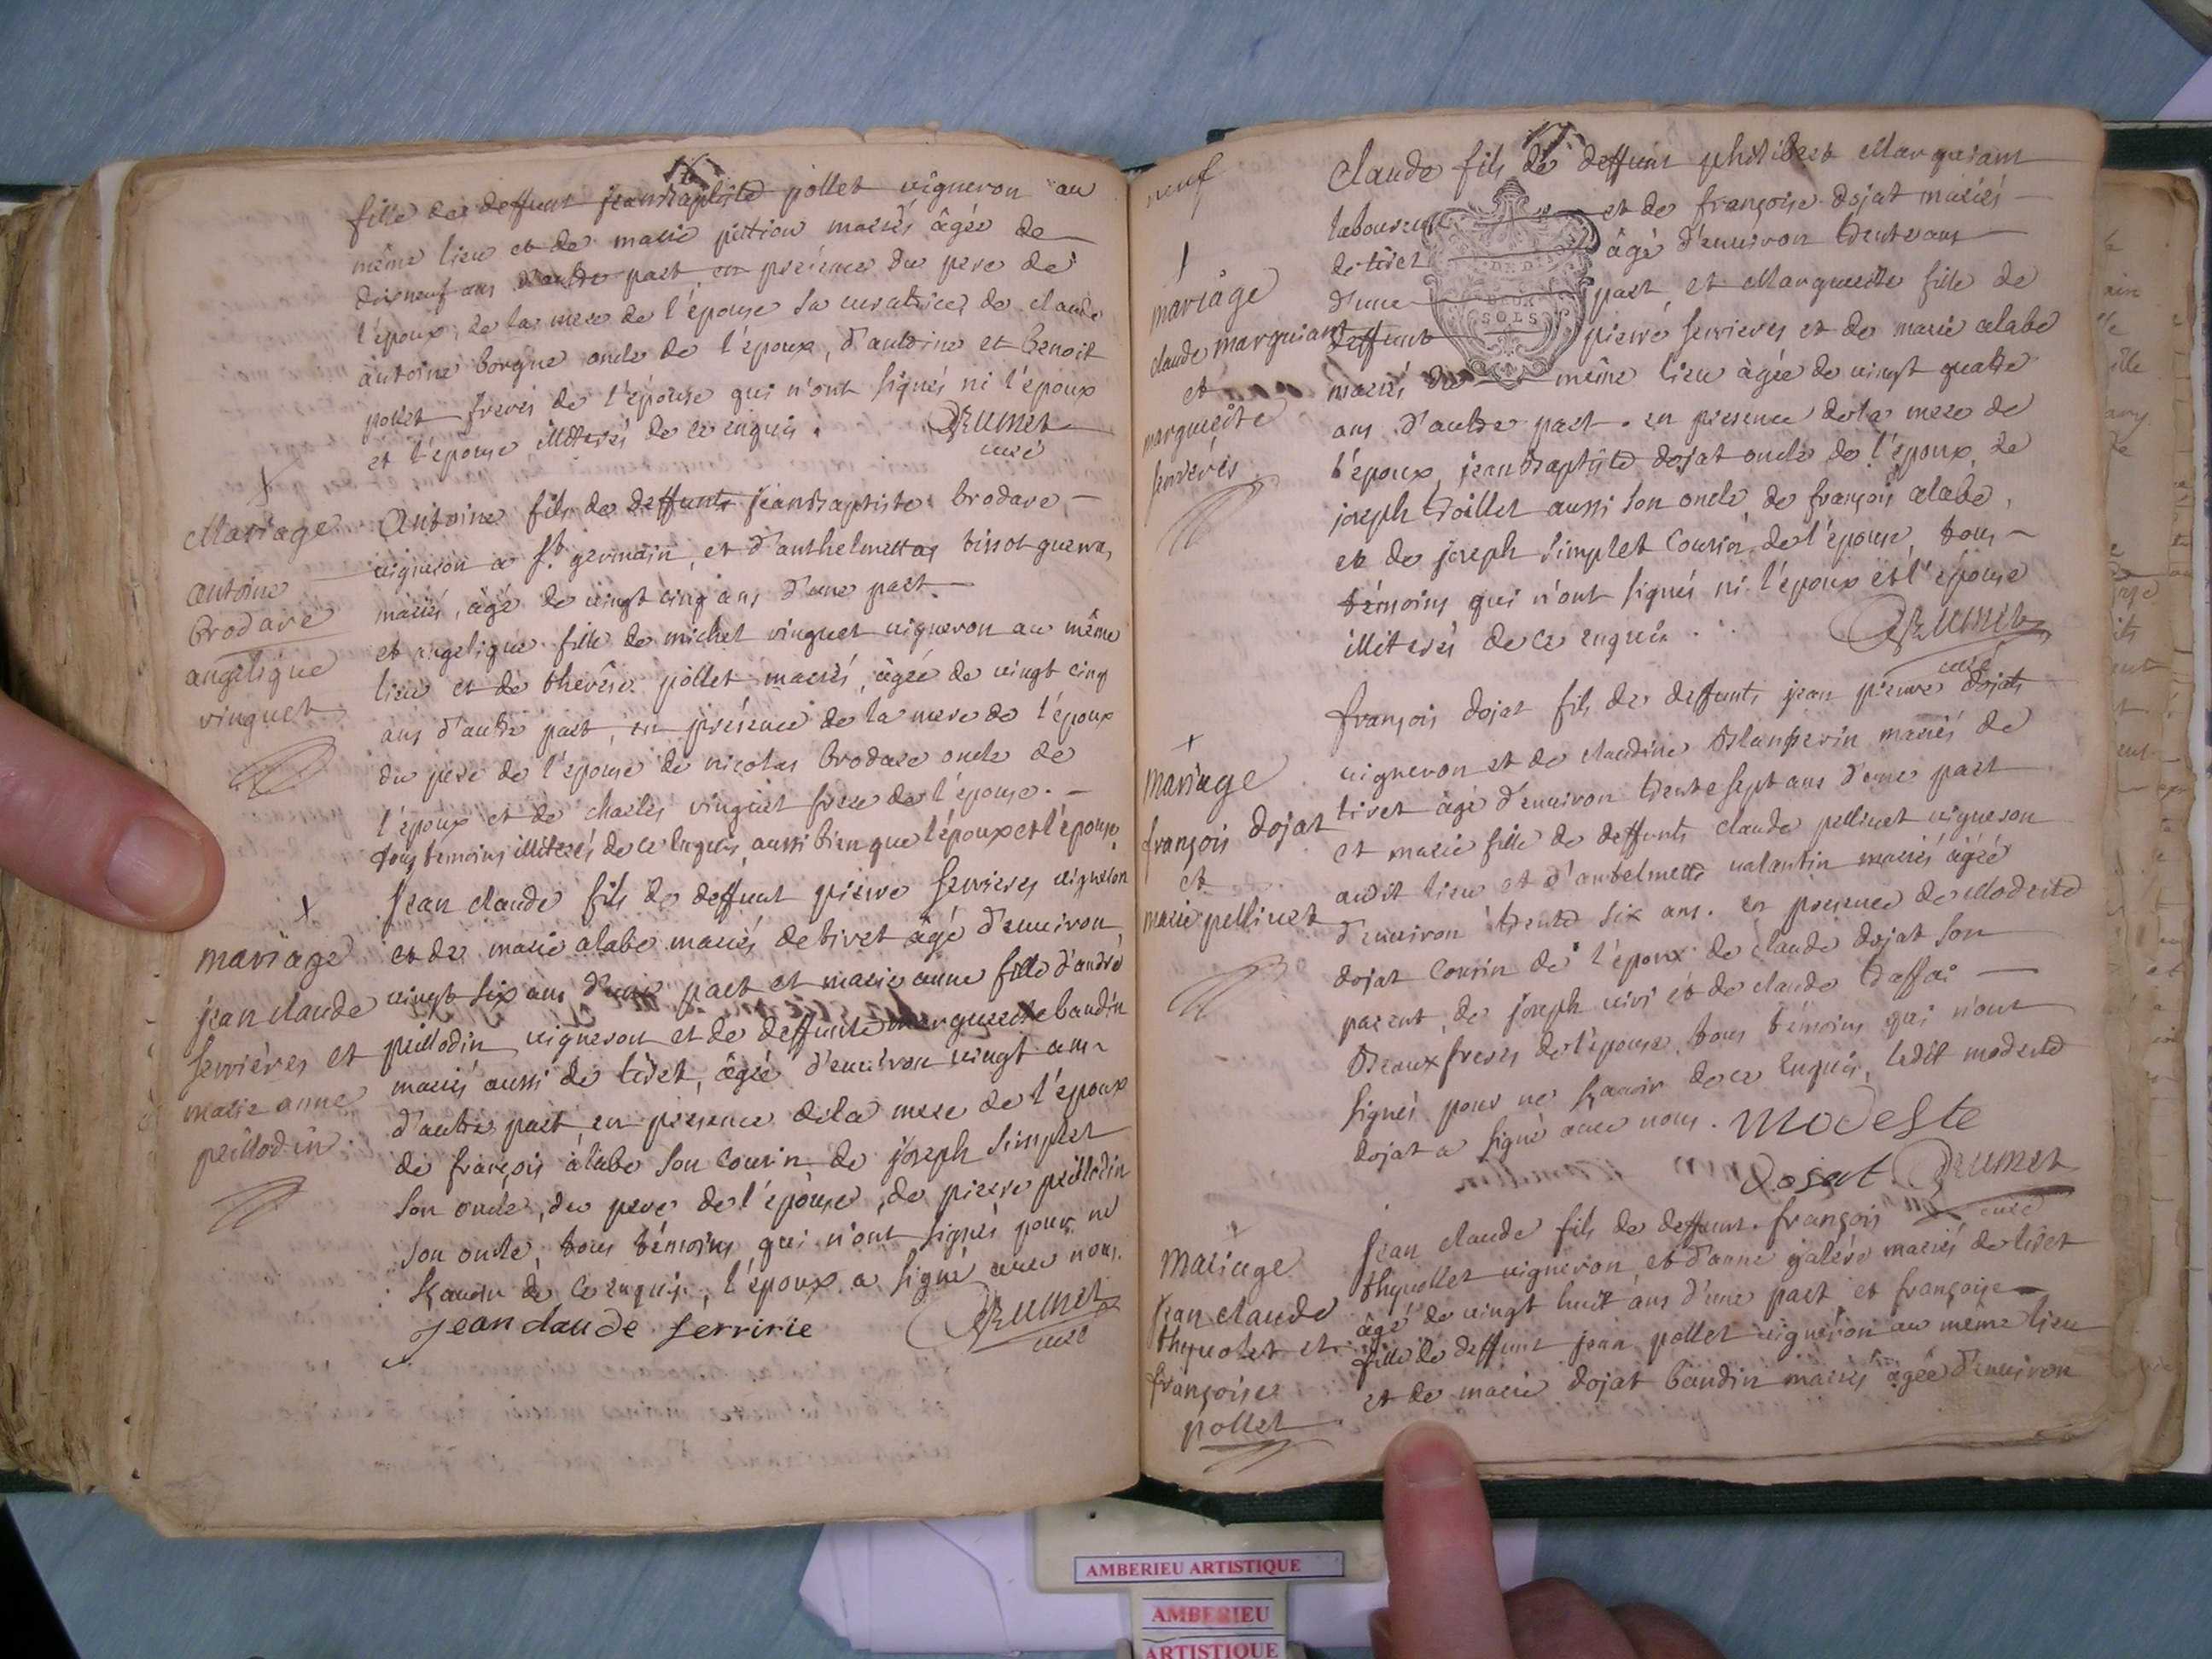 16
fille de deffunt jeanbaptiste pollet vigneron au
même lieu et de marie pietion mariés âgée de
dixneuf ans d'autre part, en présence du pere de
l'époux, de la mere de l'épouse sa curatrice, de claude
antoine borgne oncle de l'époux, d'antoine et benoit
pollet freres de l'épouse qui n'ont signés ni l'époux
et l'épouse illiterés de ce enquis.
Brumet
curé
Mariage
antoine
brodare
angelique
vinguet
Antoine fils de deffunt jeanbaptiste brodare,
vigneron a St. germain, et d'anthelmette bissot
mariés, âgé de vingt cinq ans d'une part.
et angelique fille de michel vinguet vigneron au même
lieu et de therèse pollet mariés, âgée de vingt cinq
ans d'autre part, en présence de la mere de l'époux
du pere de l'épouse de nicolas brodare oncle de
l'époux et de charles vinguet frere de l'épouse.
tous temoins illiterés de ce enquis, aussi bien que l'époux et l'épouse,
mariage
jean claude
serrières et
marie anne
peillodin
Jean claude fils de deffunt pierre serrieres vigneron
et de marie alabe mariés de tiret âgé d'environ
vingt six ans d'une part et marie anne fille d'andré
peillodin vigneron et de deffunte marguerite baudin
mariés aussi de tiret, âgée d'environ vingt ans
d'autre part, en presence de la mere de l'époux
de françois alabe son cousin, de joseph simplet
son oncle, du pere de l'épouse, de pierre peillodin
son oncle, tous témoins qui n'ont signés pour ne
sçavoir de ce enquis, l'époux a signé avec nous.
jean claude serririe
Brumet
curé
neuf
17
mariage
claude marguiant
et
marguerite
serrières
Claude fils de deffunt philibert Marguiant
laboureur et de françoise dojat mariés
de tiret âgé d'environ trente ans
d'une part, et Marguerite fille de
deffunt pierre serrieres et de marie alabe
mariés du même lieu âgée de vingt quatre
ans d'autre part. en presence de la mere de
l'époux, jeanbaptiste dojat oncle de l'époux, de
joseph troillet aussi son oncle, de françois alabe,
et de joseph simplet cousin de l'épouse, tous
témoins qui n'ont signés ni l'époux et l'épouse
illiterés de ce enquis.
Brumet
curé
mariage
françois dojat
et
marie pellinet
françois dojat fils de deffunts jean pierre dojat
vigneron et de claudine blancherin mariés de
tiret âgé d'environ trente sept ans d'une part
et marie fille de deffunts claude pellinet vigneron
audit lieu et d'antelmette valantin mariés âgée
d'environ trente six ans. en presence de Modeste
dojat cousin de l'époux de claude dojat son
parent, de joseph vivi et de claude traffai
beaux freres de l'épouse, tous témoins qui n'ont
signés pour ne sçavoir de ce enquis, ledit modeste
dojat a signé avec nous. Modeste
dojat Brumet
curé
Mariage
jean claude
thynolet et
françoise
pollet
Jean claude fils de deffunt françois
thynollet vigneron, et d'anne galére mariés de tiret
âgé de vingt huit ans d'une part et françoise
fille de deffunt jean pollet vigneron au même lieu
et de marie dojat baudin mariés âgée d'environ
DEUX
SOLS
AMBERIEU ARTISTIQUE
AMBERIEU
ARTISTIQUE